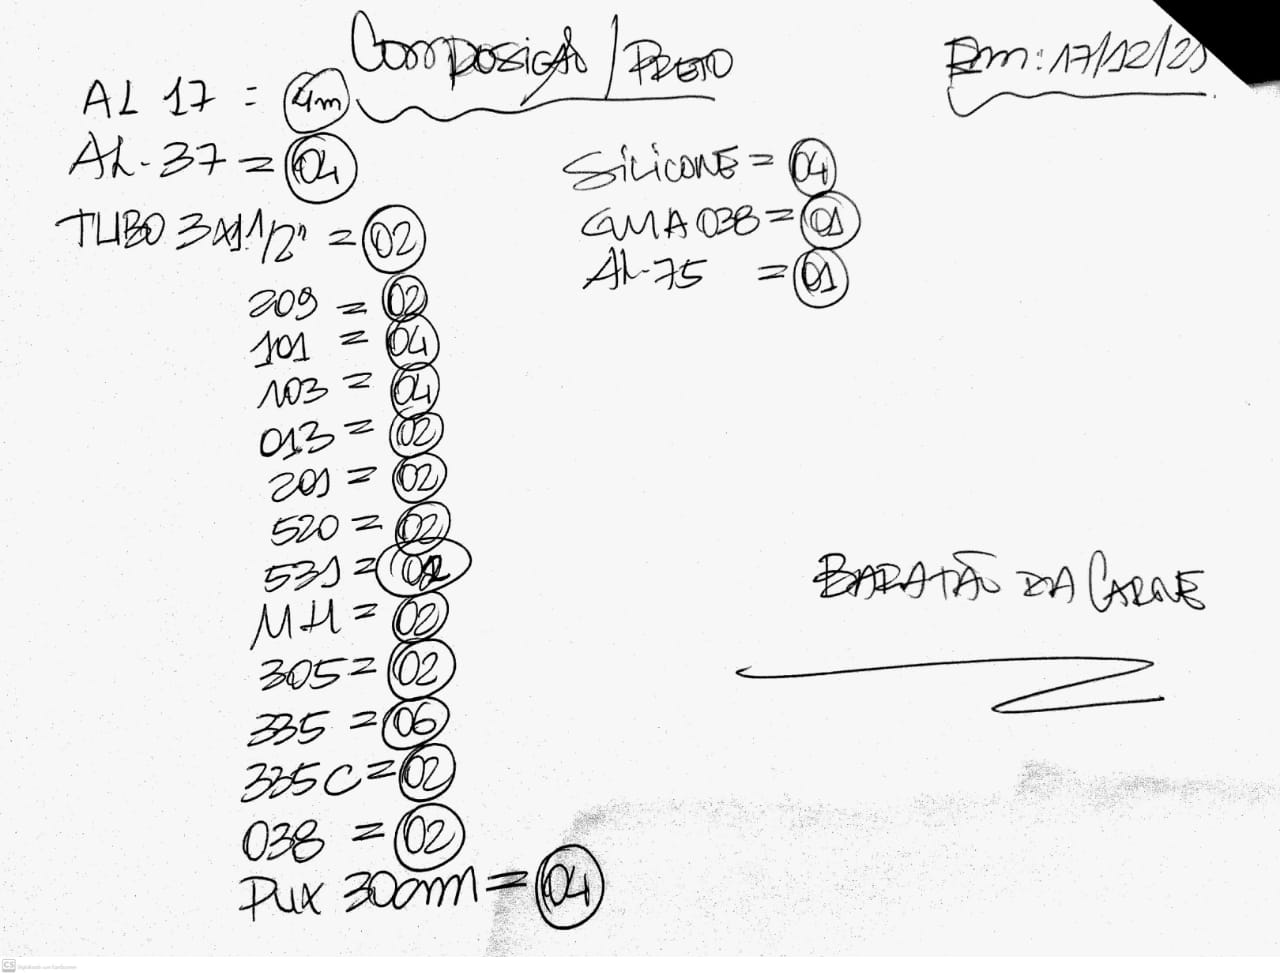 Composição / PRETO
Em: 17/12/25
AL 17 = 4m
AL-37 = 04
TUBO 3x1 1/2" = 02
209 = 02
101 = 04
103 = 04
013 = 02
201 = 02
520 = 02
531 = 02
MH = 02
305 = 02
335 = 06
335C = 02
038 = 02
Pux 30cm = 04
SILICONE = 04
GUIA 038 = 01
AL-75 = 01
BARATÃO DA CARNE
CS